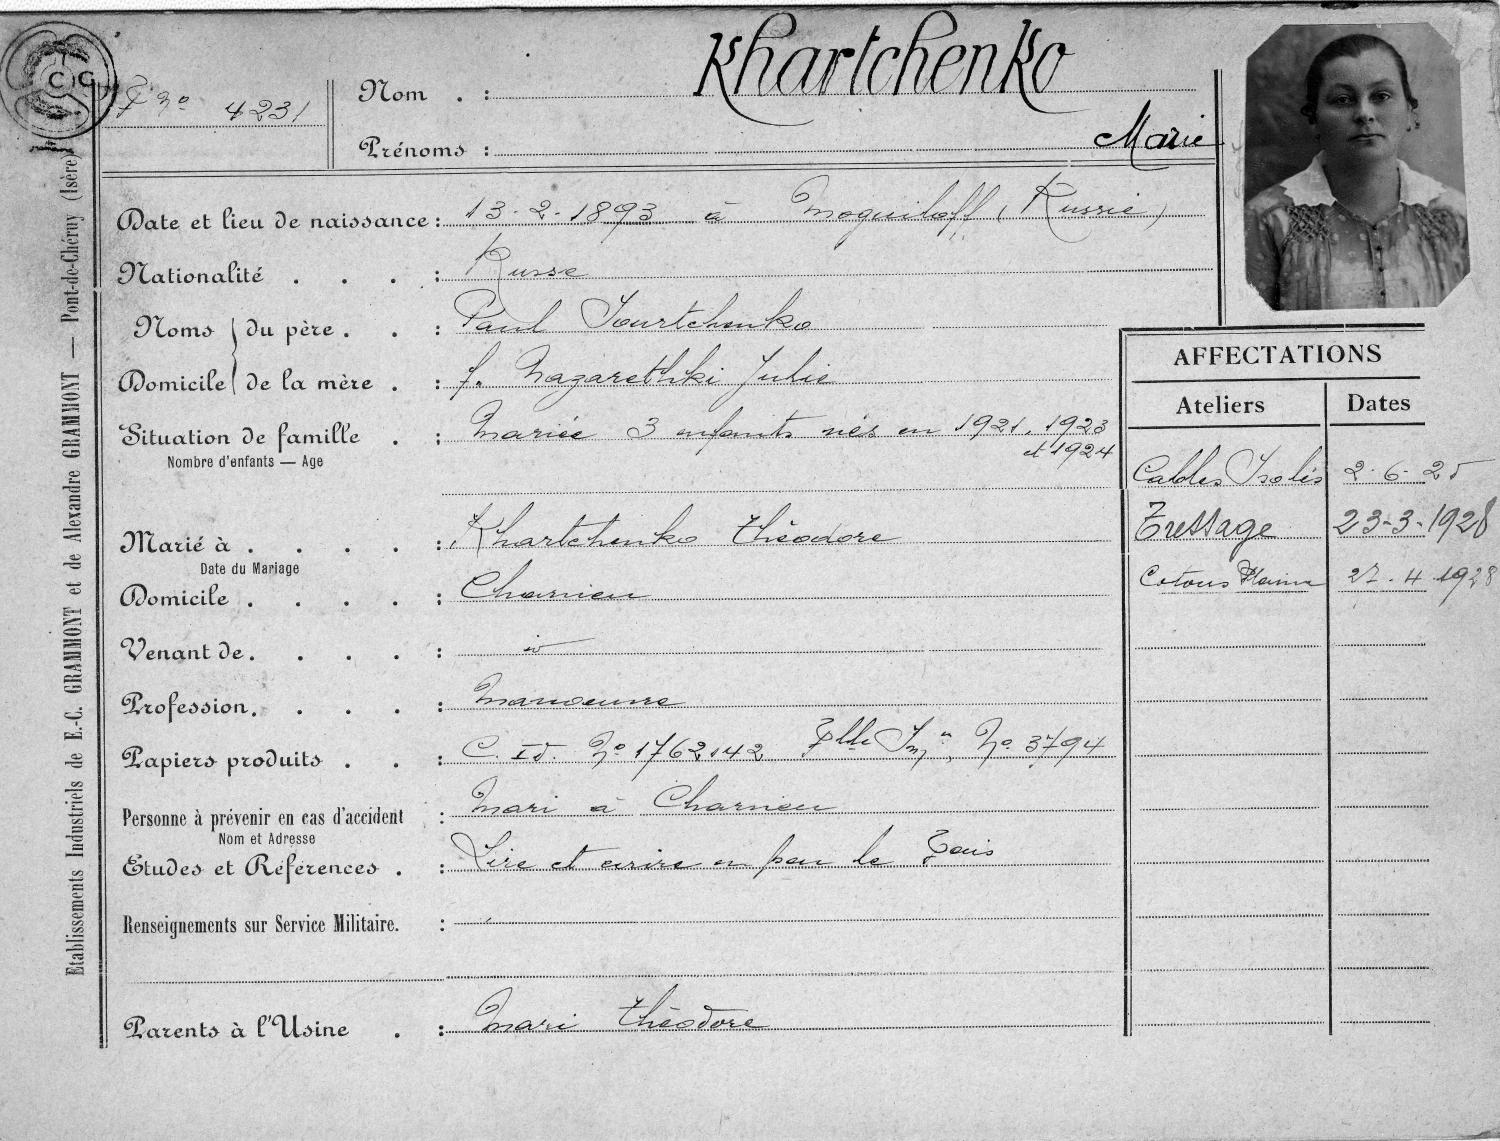 C G
F no 4231
Nom . : Khartchenko
Prénoms : Marie
Etablissements Industriels de E.-C. GRAMMONT et de Alexandre GRAMMONT — Pont-de-Chéruy (Isère)
Date et lieu de naissance : 13-2-1893 à Moguiloff (Russie)
Nationalité . . . : Russe
Noms du père . . : Paul Tourtchenko
Domicile de la mère . : f. Nazarethki Julie
Situation de famille . : Mariée 3 enfants nés en 1921, 1923
et 1924
Nombre d'enfants — Age
Marié à . . . . : Khartchenko Théodore
Date du Mariage
Domicile . . . . : Charvieu
Venant de . . . . :
Profession . . . . : Manoeuvre
Papiers produits . . : C. Id. No 1762142 No 3794
Personne à prévenir en cas d'accident : Mari à Charvieu
Nom et Adresse
Etudes et Références . : Lire et écrire un peu le
Renseignements sur Service Militaire. :
Parents à l'Usine . : Mari Théodore
AFFECTATIONS
Ateliers Dates
Cables Isolés 2-6-25
Tressage 23-3-1928
Cotons 27-4-1928